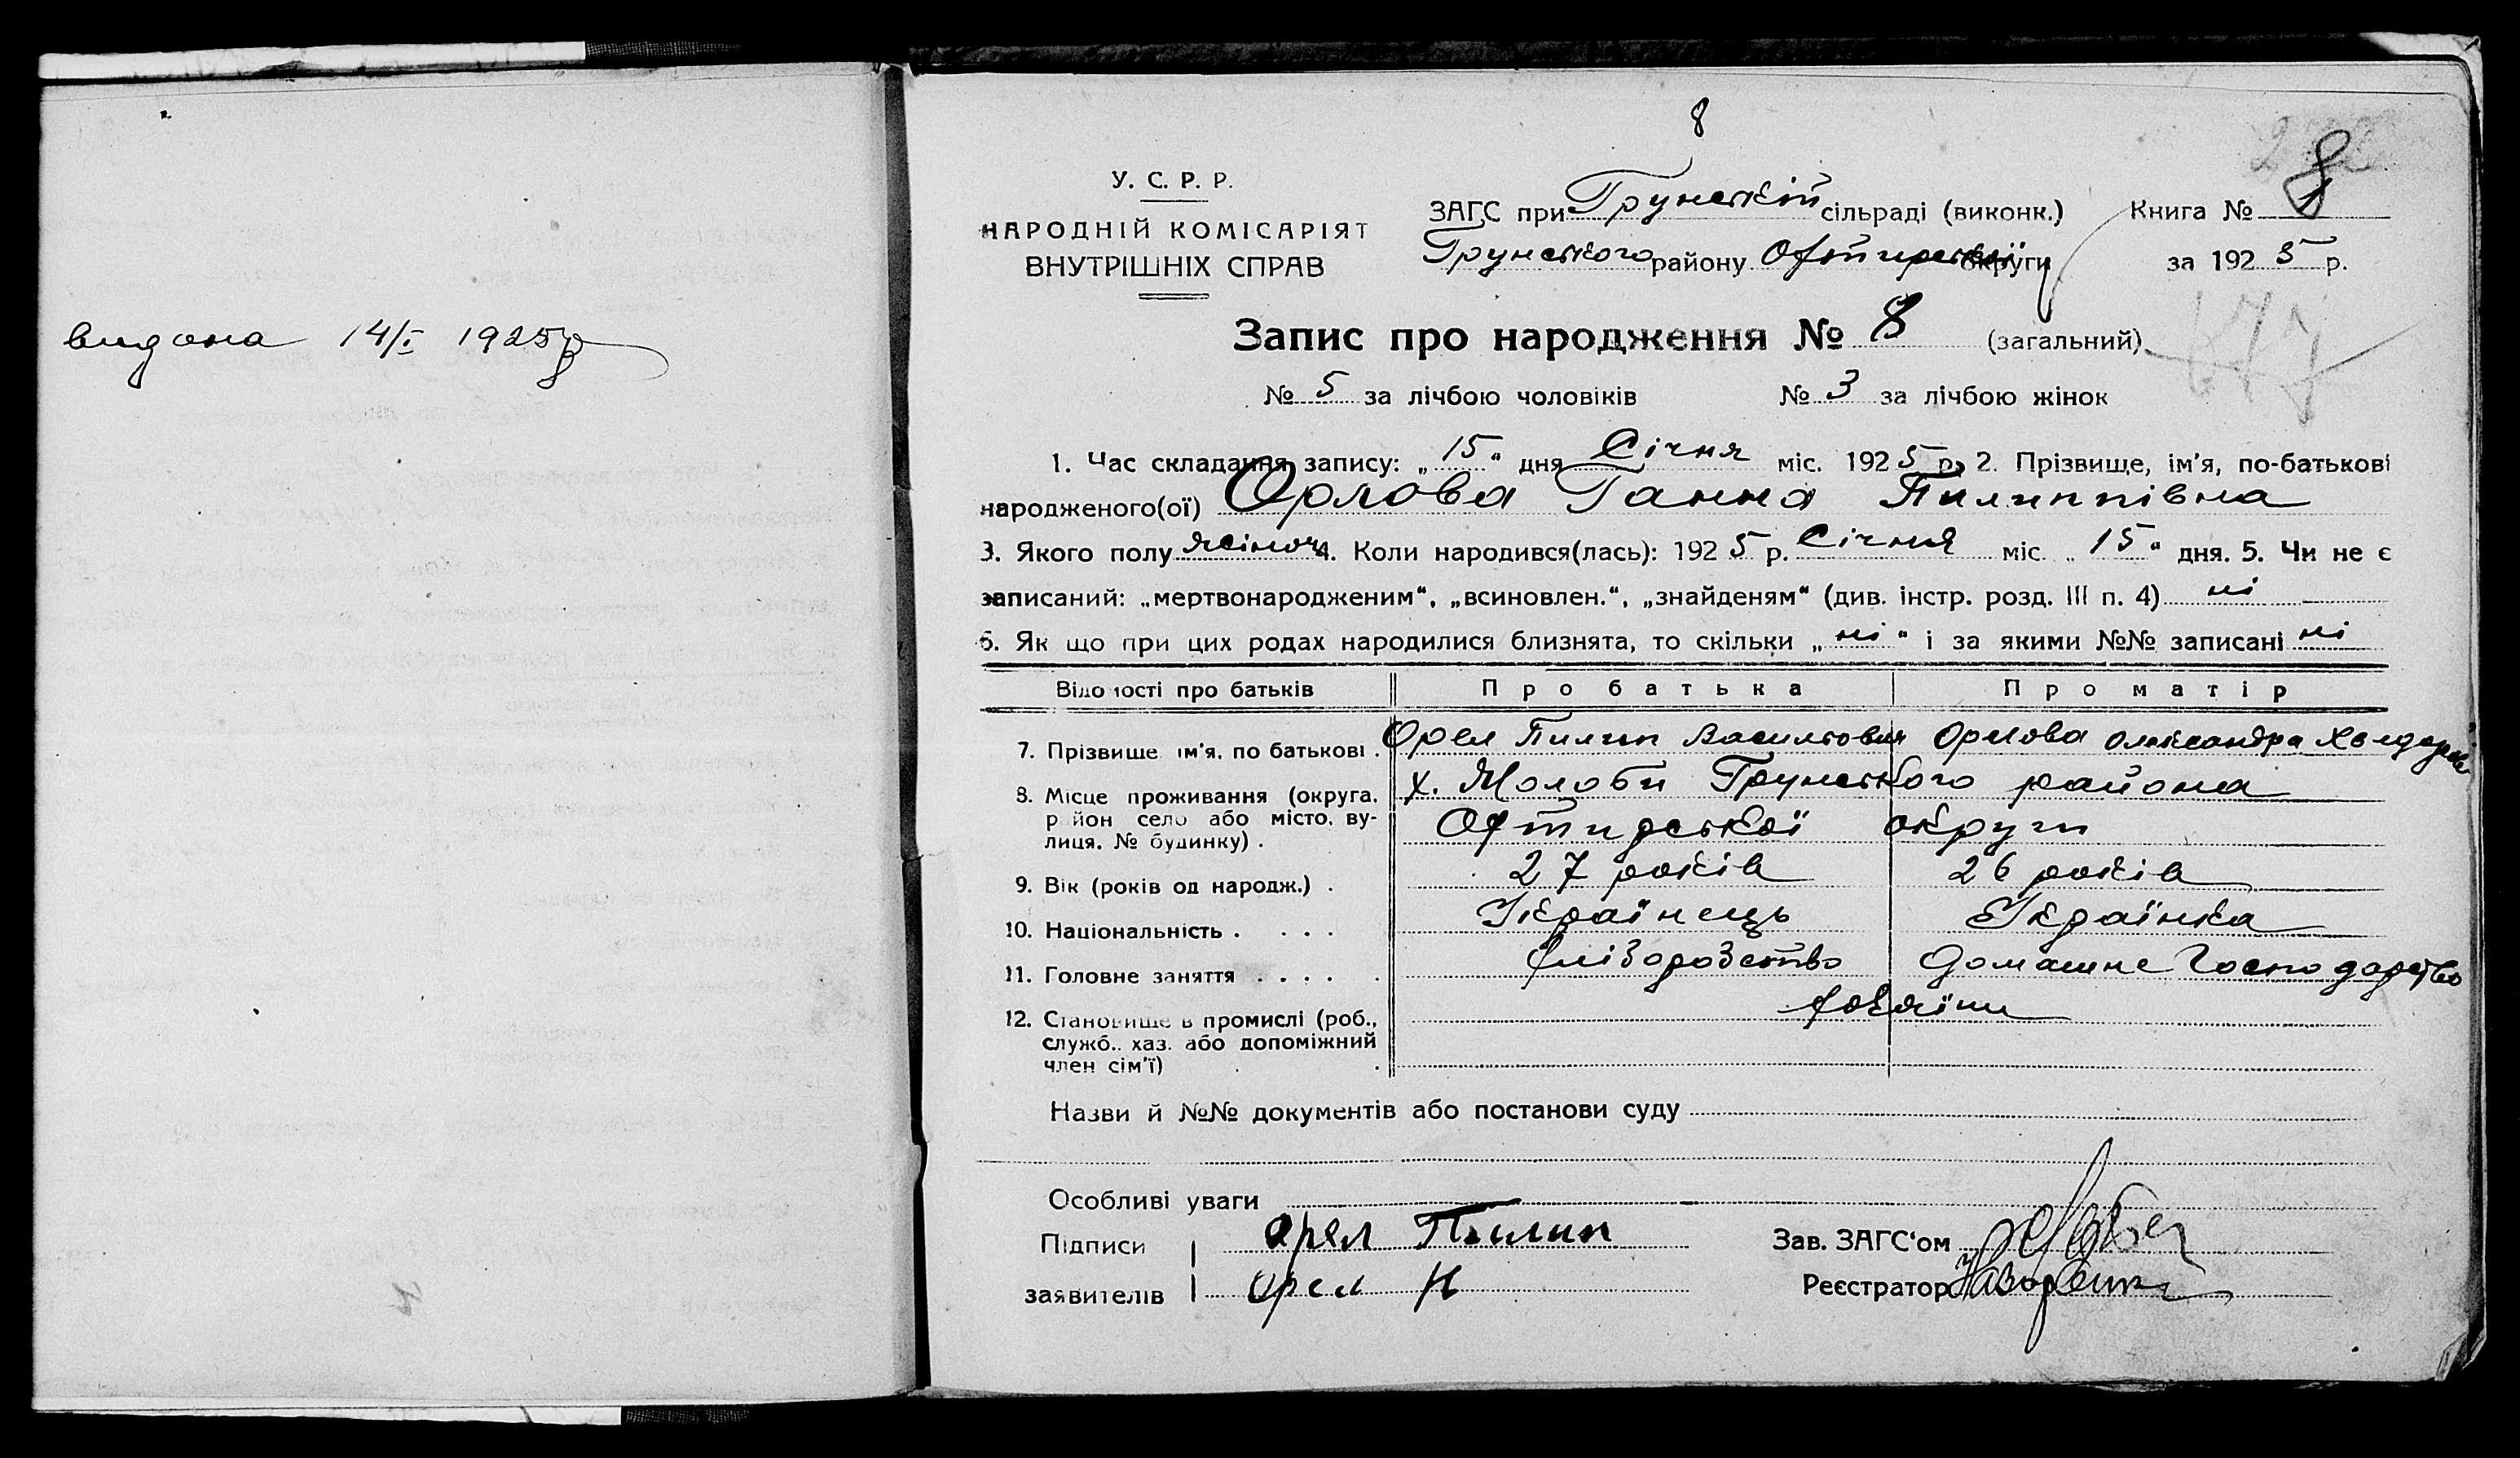 видана 14/I 1925р
8
У. С. Р. Р.
НАРОДНІЙ КОМІСАРІЯТ
ВНУТРІШНІХ СПРАВ
ЗАГС при Грунській сільраді (виконк.)
Грунського району Охтирської округи
Книга № 1
за 1925 р.
8
Запис про народження № 8 (загальний)
№ 5 за лічбою чоловіків № 3 за лічбою жінок
1. Час складання запису: „15“ дня Січня міс. 1925 р. 2. Прізвище, ім'я, по-батькові
народженого(ої) Орлова Ганна Пилиппівна
3. Якого полу жіноч 4. Коли народився(лась): 1925 р. Січня міс. „15“ дня. 5. Чи не є
записаний: „мертвонародженим“, „всиновлен.“, „знайденям“ (див. інстр. розд. III п. 4) ні
6. Як що при цих родах народилися близнята, то скільки „ні“ і за якими №№ записані ні
Відомості про батьків Про батька Про матір
7. Прізвище ім'я, по батькові . Орел Пилип Васильович Орлова Олександра
8. Місце проживання (округа, район село або місто, вулиця, № будинку) . х. Грунського района
Охтирської округи
9. Вік (років од народж.) . 27 років 26 років
10. Національність . . . . Українець Українка
11. Головне заняття . . . . . Домашнє Господарство
12. Становище в промислі (роб.,
служб., хаз. або допоміжний
член сім'ї)
Назви й №№ документів або постанови суду
Особливі уваги
Підписи Орел Пилип
заявителів Орел Н
Зав. ЗАГС'ом
Реєстратор